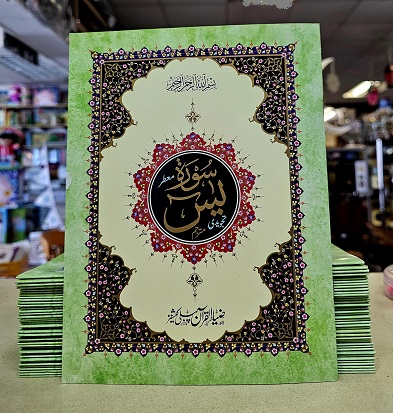 بسم الله الرحمن الرحيم
سورة
معطر
يس
ضیاء القرآن پبلی کیشنز